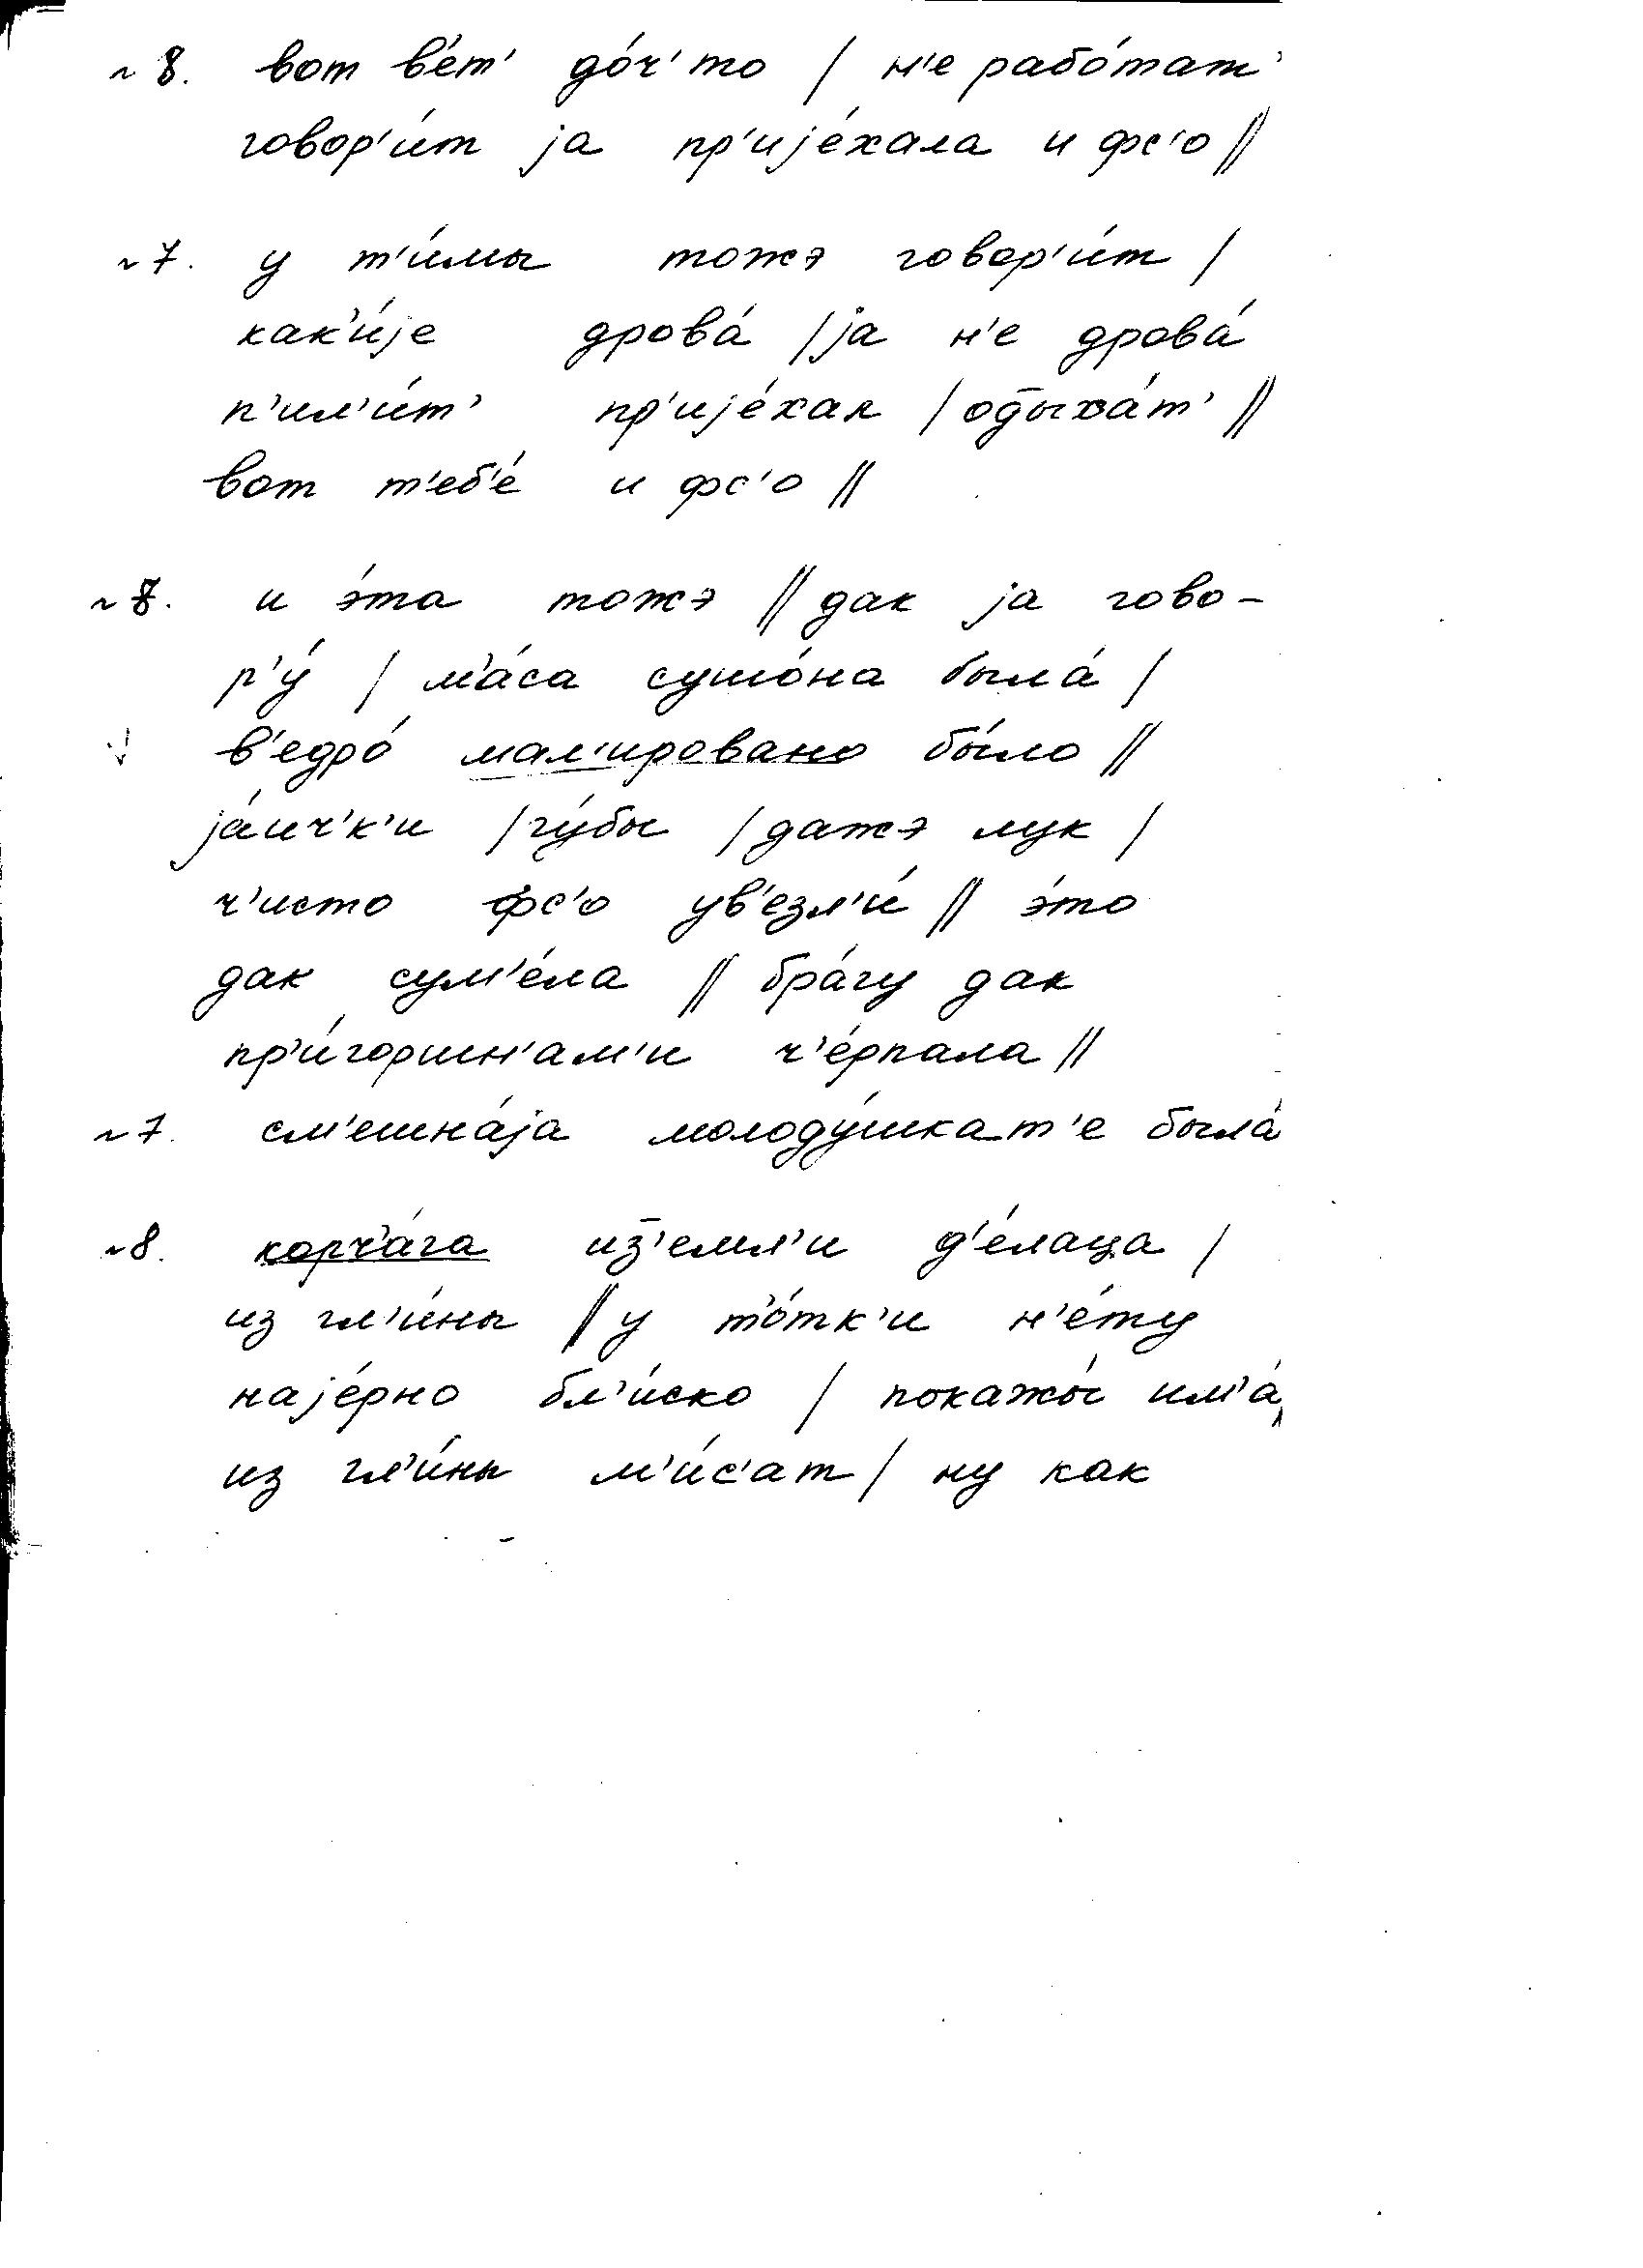 ~ 8. вот в'е́т' до́ч' то / н'е рабо́тат'
говор'и́т ја пр'ије́хала и фс'о //
~ 7. у т'и́мы тожэ говор'и́т /
как'и́је дрова́ / ја н'е дрова́
п'ил'и́т' пр'ије́хал / од̄ыха́т' //
вот т'еб'е́ и фс'о //
~ 8. и э́та тожэ // дак ја гово-
р'у́ / м'а́са сушо́на была́ /
в'едро́ мал'ировано бы́ло //
ја́ич'к'и / гу́бы / дажэ лук /
ч'исто фс'о ув'езл'и́ // э́то
дак сум'е́ла // бра́гу дак
пр'и́горшн'ам'и ч'е́рпала //
~ 7. см'ешна́ја молоду́шка т'е была́
~ 8. корч'а́га из̄'емл'и д'е́лаца /
из гл'и́ны // у т'о́тк'и н'е́ту
наје́рно бл'и́ско / покажы́ им'а́
из гл'и́ны м'и́с'ат / ну как